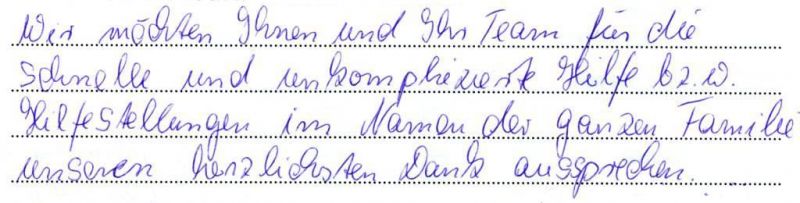 Wir möchten Ihnen und Ihr Team für die
schnelle und unkomplizierte Hilfe bzw.
Hilfestellungen im Namen der ganzen Familie
unseren herzlichsten Dank aussprechen.